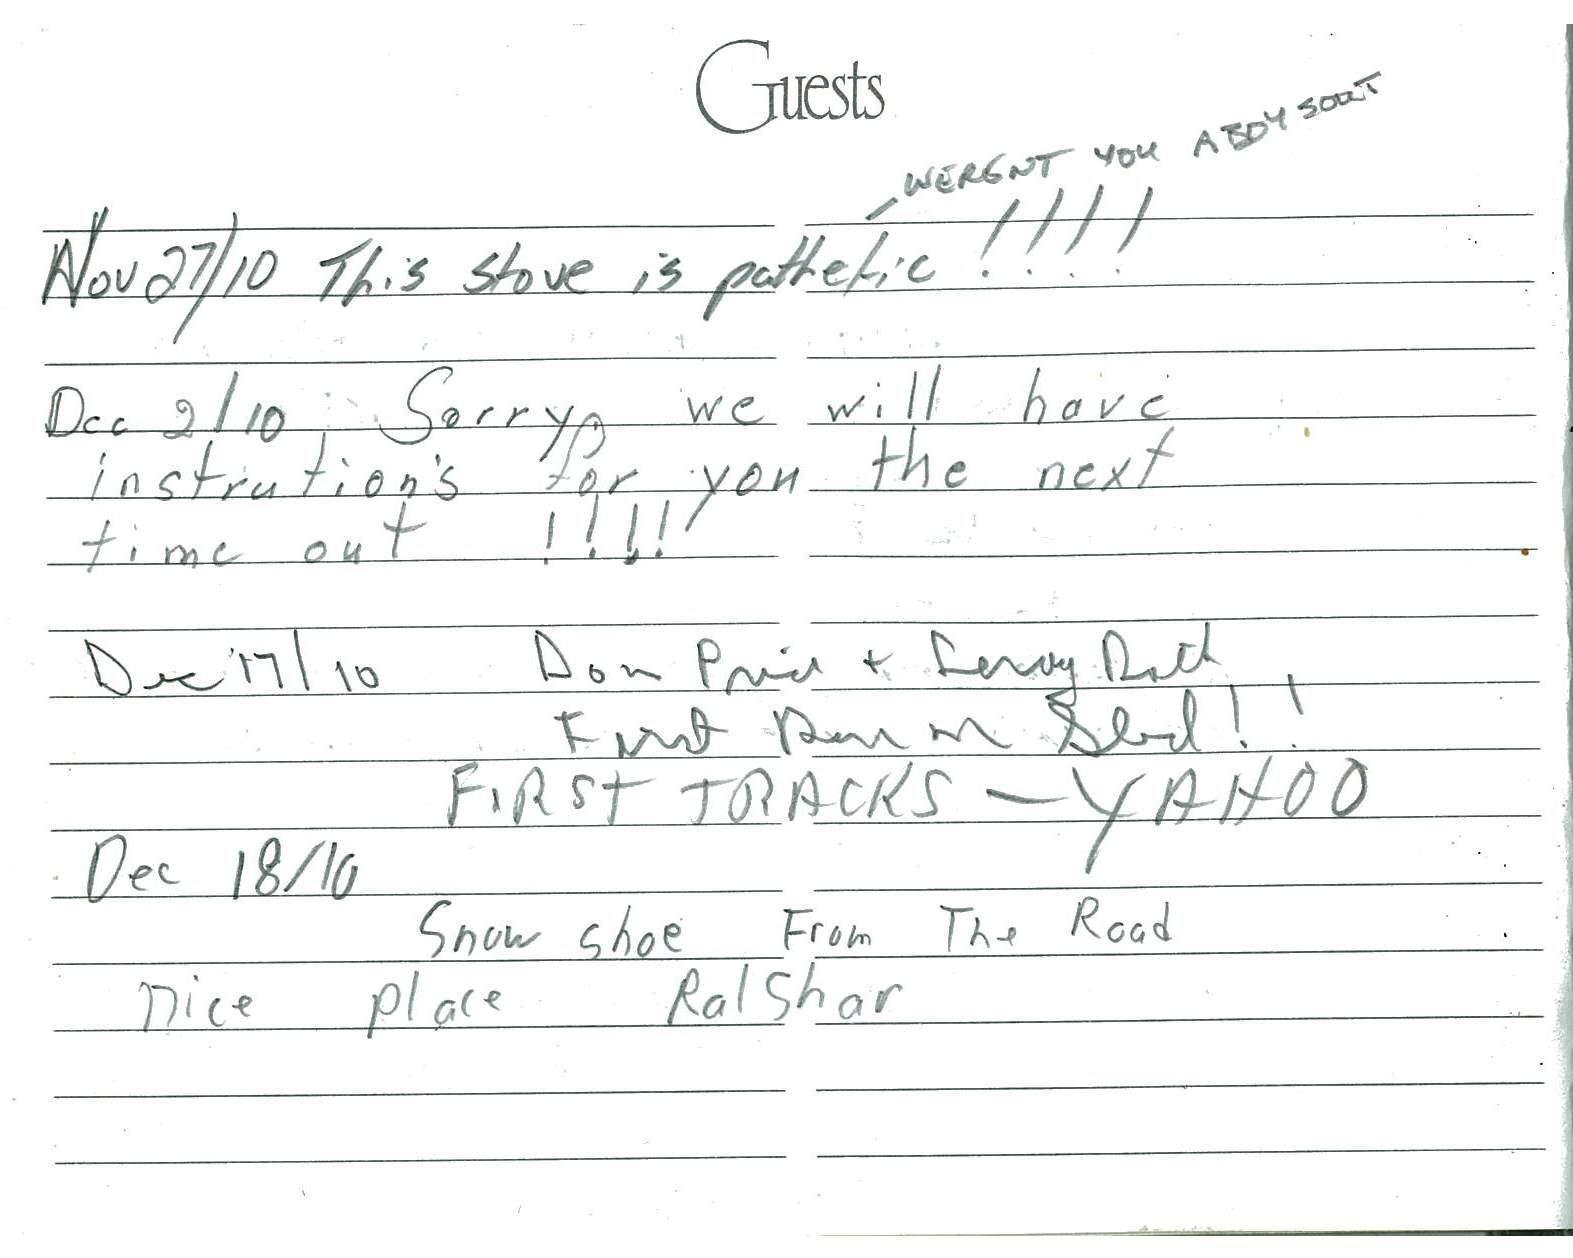 Guests
WERENT YOU A BOY SOUT
Nov 27/10 This stove is pathetic !!!!
Dec 2/10 Sorry, we will have
instrution's for you the next
time out !!!!
Dec 17/10 Don Price + Leroy
First Run on Sled!!
FIRST TRACKS — YAHOO
Dec 18/10
Snow shoe From The Road
nice place Ral Shar